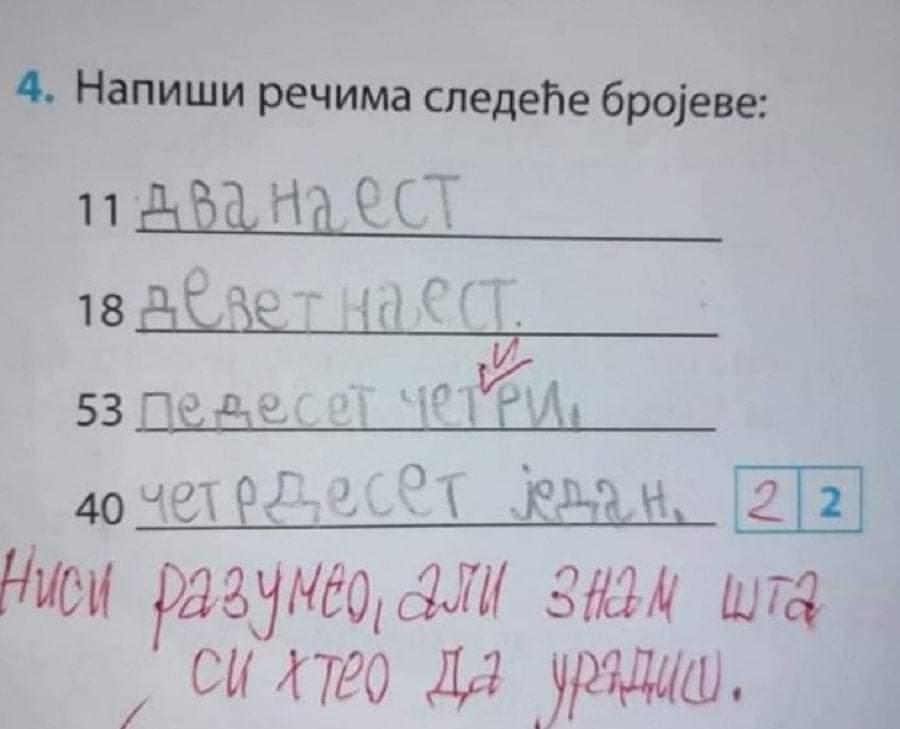 4. Напиши речима следеће бројеве:
11 дванаест
18 деветнаест.
и
53 педесет четри.
40 четрдесет један. 2 2
Ниси разумео, али знам шта
си хтео да урадиш.